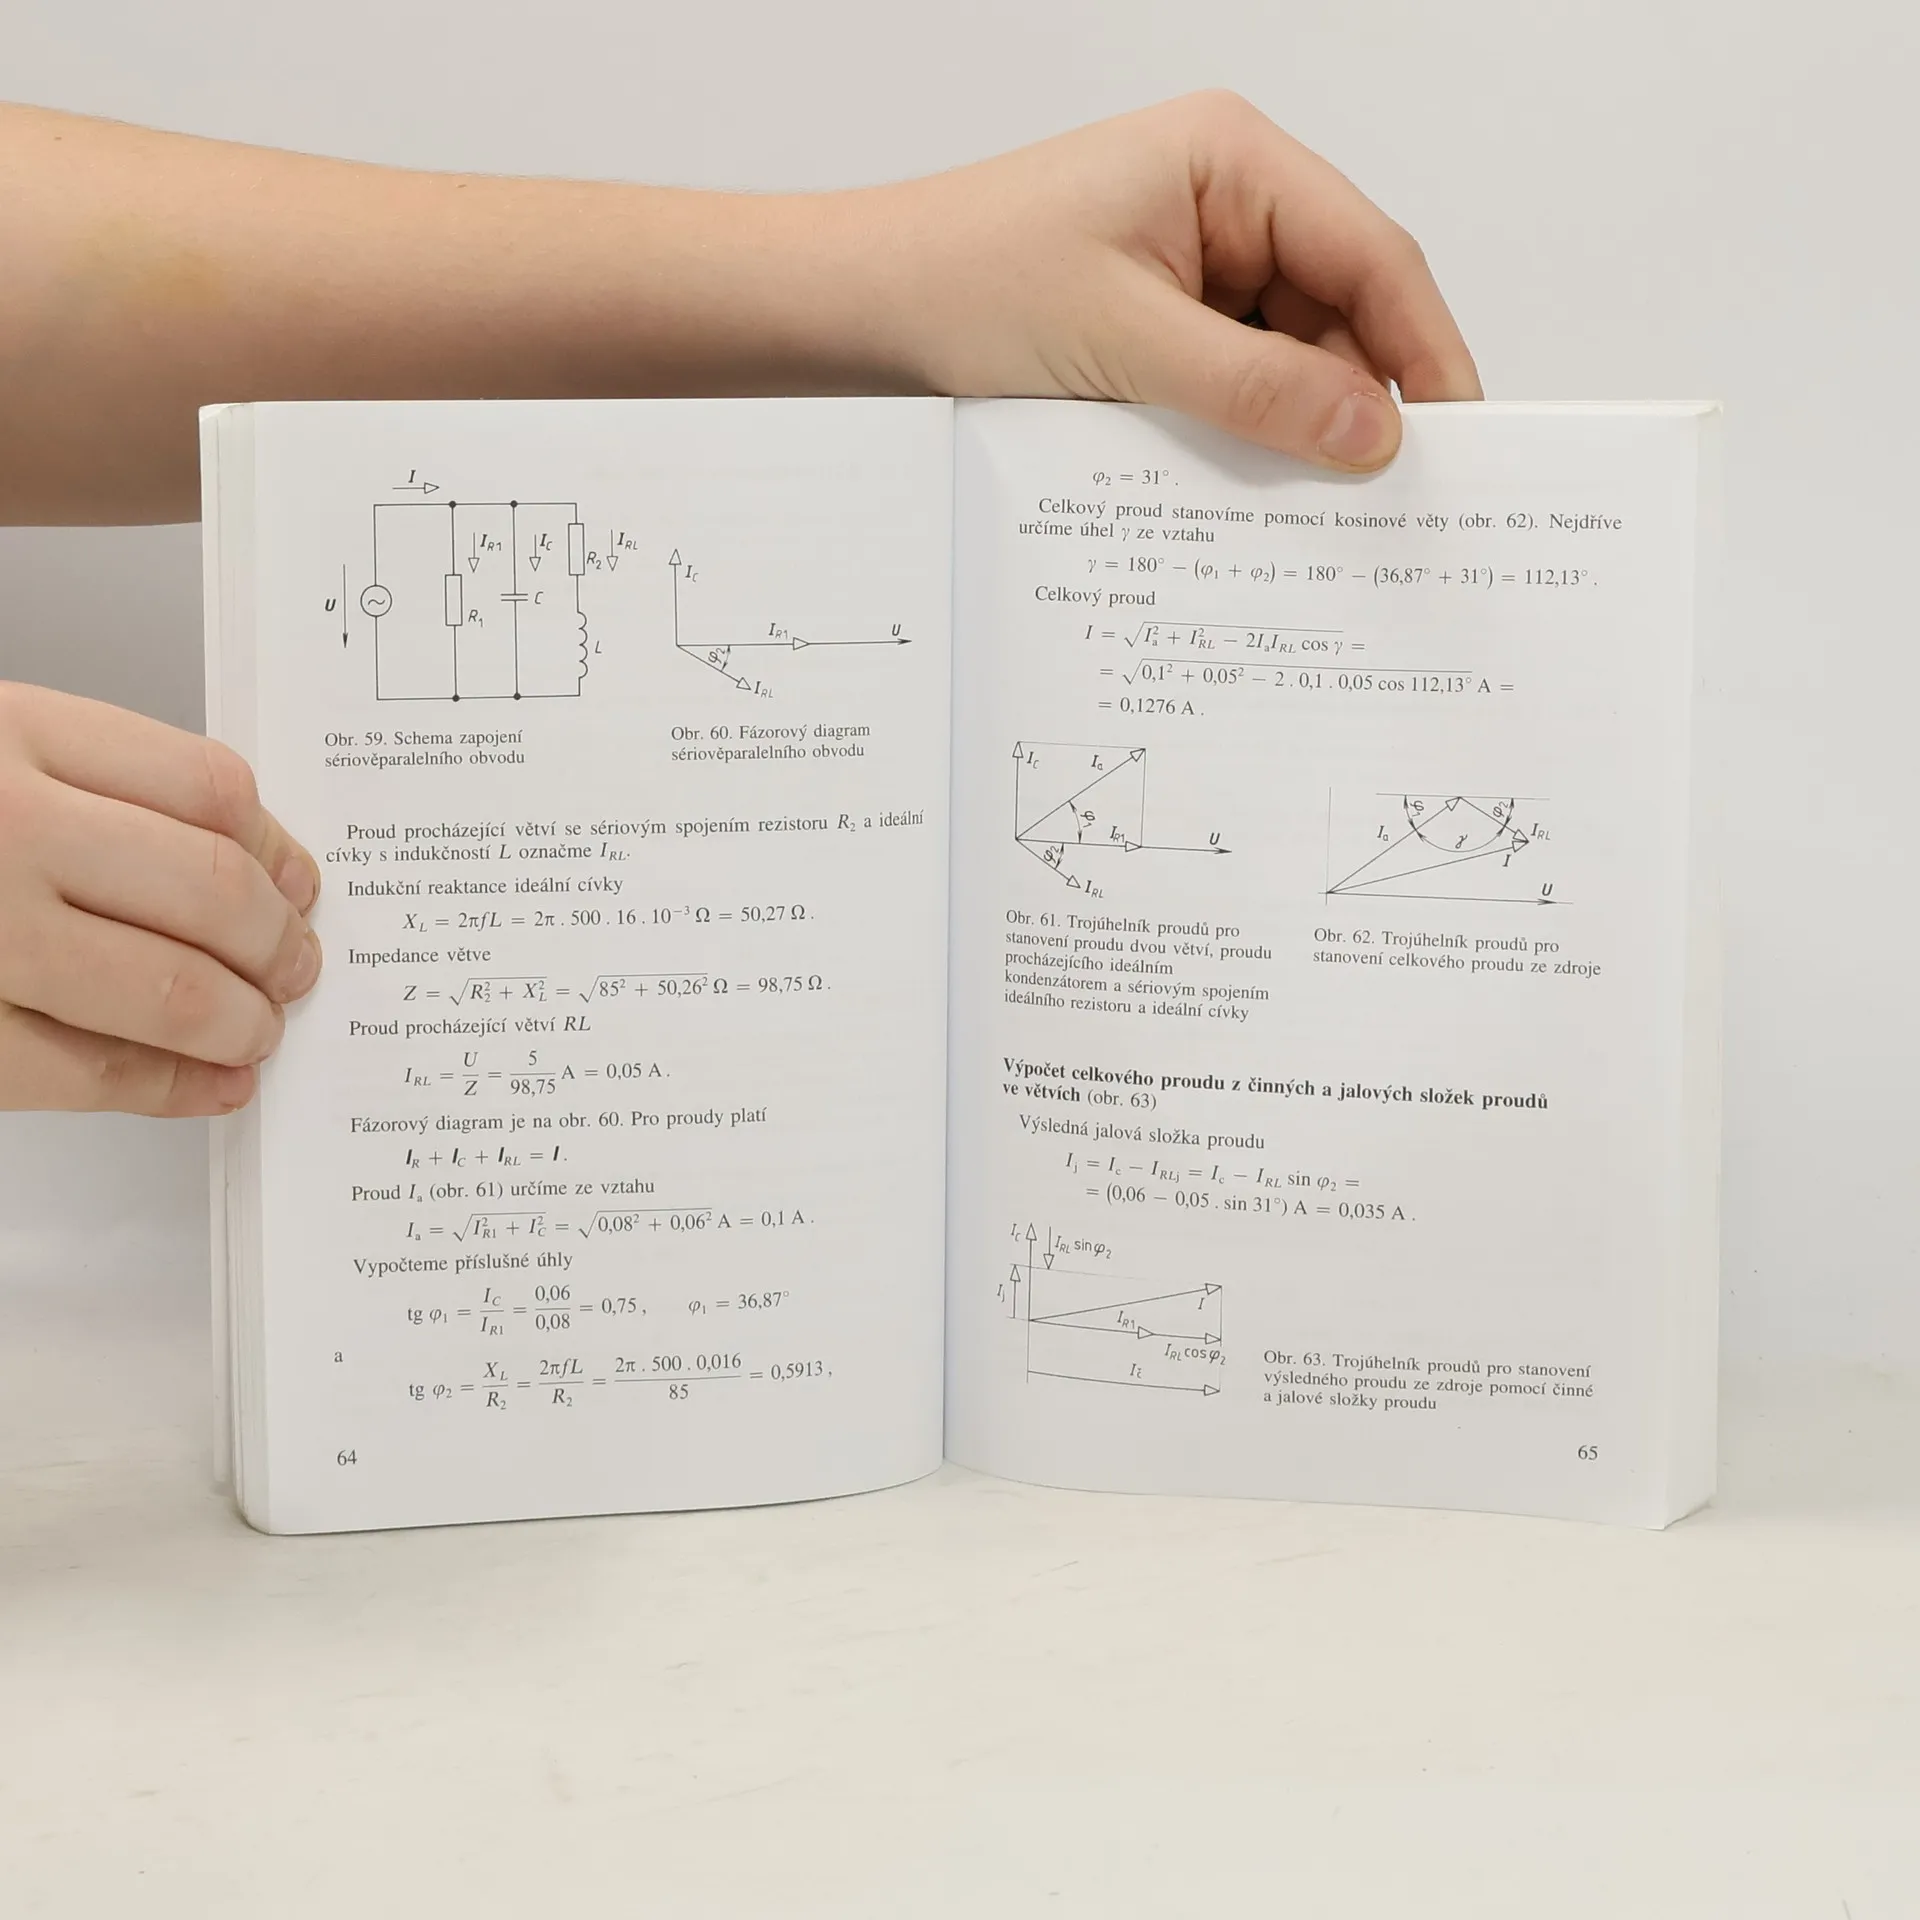 I
U
I_R1
I_C
R_2
I_RL
R_1
C
L
I_C
I_R1
U
φ_2
I_RL
Obr. 59. Schema zapojení
sériověparalelního obvodu
Obr. 60. Fázorový diagram
sériověparalelního obvodu
Proud procházející větví se sériovým spojením rezistoru R_2 a ideální
cívky s indukčností L označme I_RL.
Indukční reaktance ideální cívky
X_L = 2πfL = 2π . 500 . 16 . 10⁻³ Ω = 50,27 Ω .
Impedance větve
Z = √(R_2² + X_L²) = √(85² + 50,26²) Ω = 98,75 Ω .
Proud procházející větví RL
I_RL = U/Z = 5/98,75 A = 0,05 A .
Fázorový diagram je na obr. 60. Pro proudy platí
I_R + I_C + I_RL = I .
Proud I_a (obr. 61) určíme ze vztahu
I_a = √(I_R1² + I_C²) = √(0,08² + 0,06²) A = 0,1 A .
Vypočteme příslušné úhly
tg φ_1 = I_C/I_R1 = 0,06/0,08 = 0,75 , φ_1 = 36,87°
a
tg φ_2 = X_L/R_2 = 2πfL/R_2 = 2π . 500 . 0,016/85 = 0,5913 ,
64
φ_2 = 31° .
Celkový proud stanovíme pomocí kosinové věty (obr. 62). Nejdříve
určíme úhel γ ze vztahu
γ = 180° − (φ_1 + φ_2) = 180° − (36,87° + 31°) = 112,13° .
Celkový proud
I = √(I_a² + I_RL² − 2I_aI_RL cos γ) =
= √(0,1² + 0,05² − 2 . 0,1 . 0,05 cos 112,13°) A =
= 0,1276 A .
I_C
I_a
φ_1
I_R1
U
φ_2
I_RL
φ_1
φ_2
I_a
γ
I_RL
I
U
Obr. 61. Trojúhelník proudů pro
stanovení proudu dvou větví, proudu
procházejícího ideálním
kondenzátorem a sériovým spojením
ideálního rezistoru a ideální cívky
Obr. 62. Trojúhelník proudů pro
stanovení celkového proudu ze zdroje
Výpočet celkového proudu z činných a jalových složek proudů
ve větvích (obr. 63)
Výsledná jalová složka proudu
I_j = I_c − I_RLj = I_c − I_RL sin φ_2 =
= (0,06 − 0,05 . sin 31°) A = 0,035 A .
I_C
I_RL sinφ_2
I_j
I
I_R1
I_RL cosφ_2
I_č
Obr. 63. Trojúhelník proudů pro stanovení
výsledného proudu ze zdroje pomocí činné
a jalové složky proudu
65